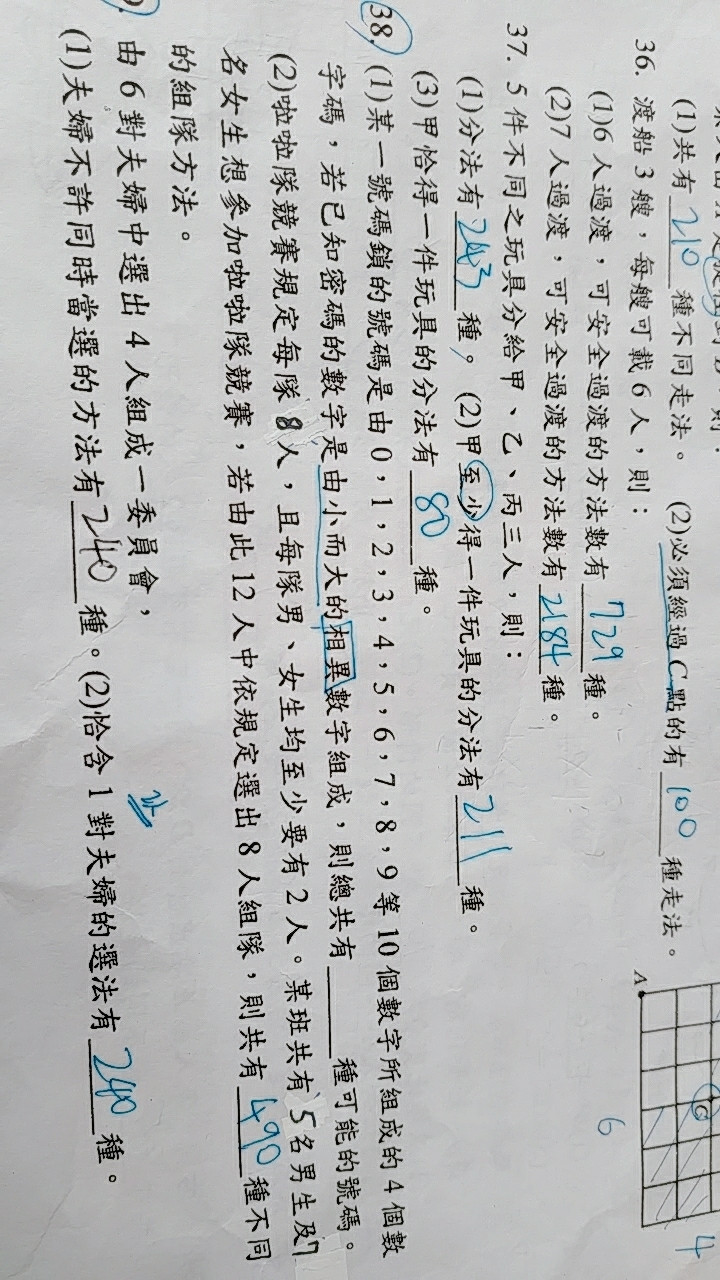 (1)共有210種不同走法。 (2)必須經過C點的有100種走法。
36. 渡船3艘，每艘可載6人，則：
(1)6人過渡，可安全過渡的方法數有729種。
(2)7人過渡，可安全過渡的方法數有2184種。
37. 5件不同之玩具分給甲、乙、丙三人，則：
(1)分法有243種。 (2)甲至少得一件玩具的分法有211種。
(3)甲恰得一件玩具的分法有80種。
38. (1)某一號碼鎖的號碼是由0，1，2，3，4，5，6，7，8，9等10個數字所組成的4個數
字碼，若已知密碼的數字是由小而大的相異數字組成，則總共有____種可能的號碼。
(2)啦啦隊競賽規定每隊8人，且每隊男、女生均至少要有2人。某班共有5名男生及7
名女生想參加啦啦隊競賽，若由此12人中依規定選出8人組隊，則共有490種不同
的組隊方法。
由6對夫婦中選出4人組成一委員會，
(1)夫婦不許同時當選的方法有240種。(2)恰含1對夫婦的選法有240種。
A
C
6
4